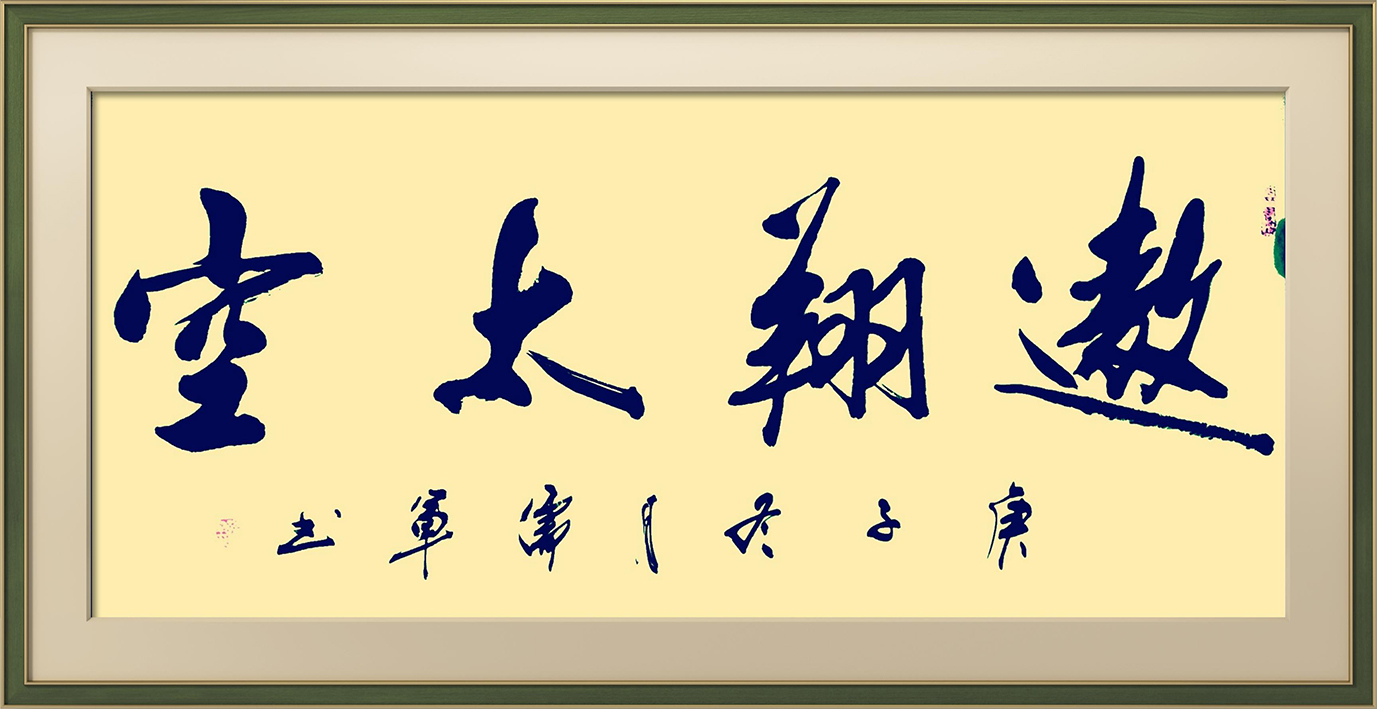 遨翔太空
庚子冬月
軍书